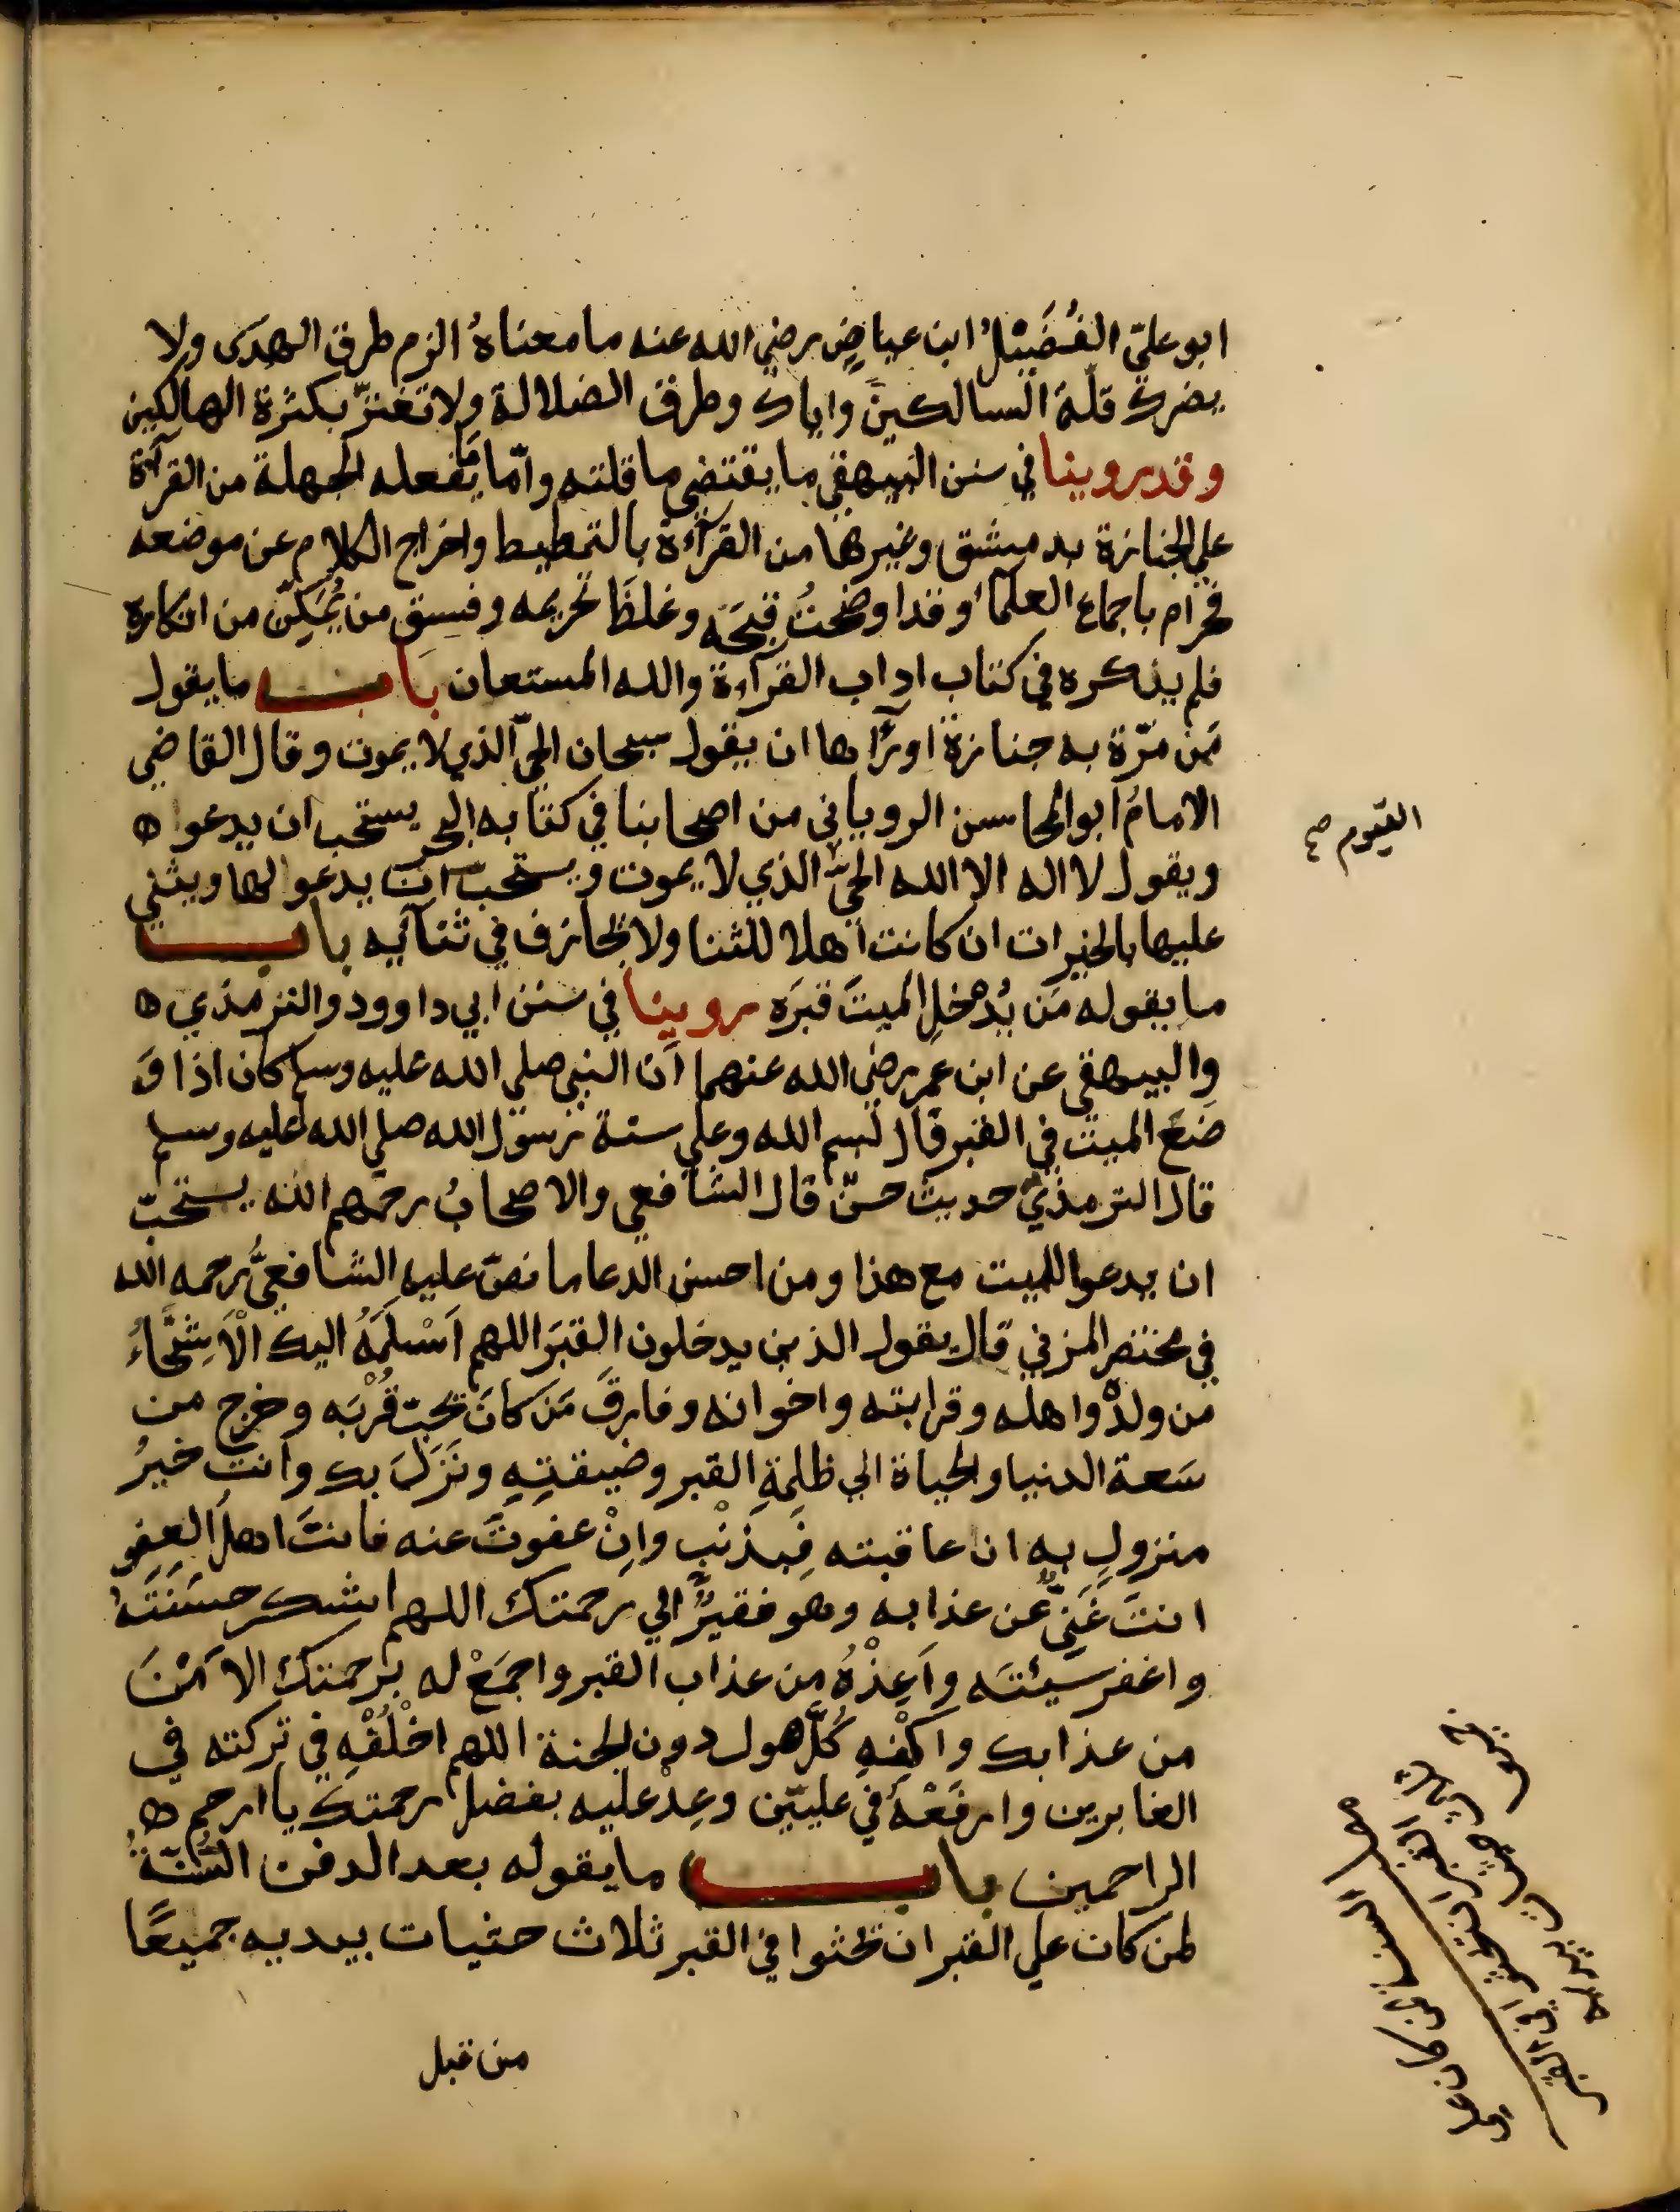 ابو عليّ الفُضَيْلُ ابن عياضٍ رضي الله عنه ما معناهُ الزم طرق الهدَى ولا
يضرك قلّة السالكين وايّاك وطرق الضلالة ولا تغترّ بكثرة الهالكين
وقد روينا في سنن البيهقي ما يقتضي ما قلته وامّا يفعله الجهلة من القرآة
علي الجنازة بدمشق وغيرها من القرآءة بالتمطيط واخراج الكلام عن موضعه
فحرام باجماع العلمآ وقد اوضحتُ قبحَه وغلظَ تحريمه وفسق من يُمَكَّن من انكاره
فلم ينكره في كتاب اداب القرآءة والله المستعان باب ما يقول
مَن مرّة به جنازة اورآها ان يقول سبحان الحيّ الذي لا يموت وقال القاضي
الامامُ ابو المحاسن الروياني من اصحابنا في كتابه البحر يستحب ان يدعوا
ويقول لا اله الا الله الحيّ الذي لا يموت ويستحب ان يدعو لها ويثني
عليها بالخيرات ان كانت اهلا للثنا ولا تجازف في ثنآئيه باب
ما يقوله مَن يُدْخل الميتَ قبرَه روينا في سنن ابي داوود والترمذي
والبيهقي عن ابن عمر رضي الله عنهما ان النبي صلي الله عليه وسلم كان اذا وَ
ضعَ الميت في القبر قال بسم الله وعلي سنة رسول الله صلي الله عليه وسلم
قال الترمذيّ حديث حسنٌ قال الشافعي والاصحابُ رحمهم الله يستحبّ
ان يدعوا للميت مع هذا ومن احسن الدعا ما نصّ عليه الشافعيُّ رحمه الله
في مختصر المزني قال يقول الذين يدخلون القبرَ اللهم اَسْلَمَهُ اليك الْاَشِحَّاءُ
من ولدْ واهله وقرابته واخوانه وفارقَ مَن كانَ يحب قُرْبَه وخرج من
سَعة الدنيا والحياة الي ظلمةِ القبر وضيقتِهِ ونَزَلَ بك وانت خيرُ
منزولٍ به ان عاقبته فَبِذَنْبٍ وانْ عفوتَ عنه فانتَ اهلُ العفو
انتَ غَنِيٌّ عن عذابه وهو فقيرٌ الي رحمتك اللهم اشكر حسَنَتَهُ
واغفر سيئتَه واَعِذْهُ من عذاب القبر واجمَعْ له برحمتك الاَمْنَ
من عذابك واكْفِهِ كُلَّ هول دون الجنة اللهم اخْلُفْهِ في تركته في
الغابرين وارفَعْهُ في عليّين وعِدْ عليه بفضل رحمتك يا ارحم
الراحمين باب ما يقوله بعد الدفن السُّنّةُ
لمن كان علي القبر ان تحثوا في القبر ثلاث حثيات بيديه جميعًا
من قبل
القيوم صح